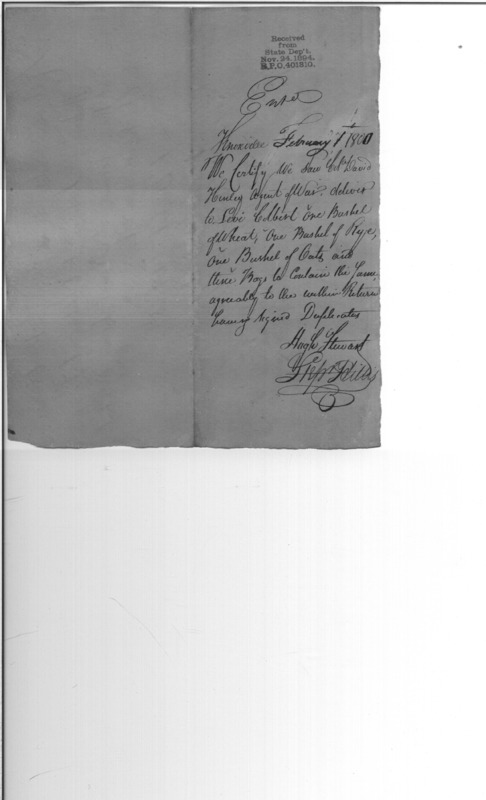 Received
from
State Dep't.
Nov. 24, 1894.
R.P.O. 401310.
Ent'd
Knoxville February 7th 1800
We Certify We Saw Col. David
Henley Agent of War deliver
to Levi Colbert One Bushel
of Wheat, One Bushel of Rye,
One Bushel of Oats and
three Bags to Contain the Same
agreeably to the within Return
having Signed Duplicates
Hugh Stewart
Hills